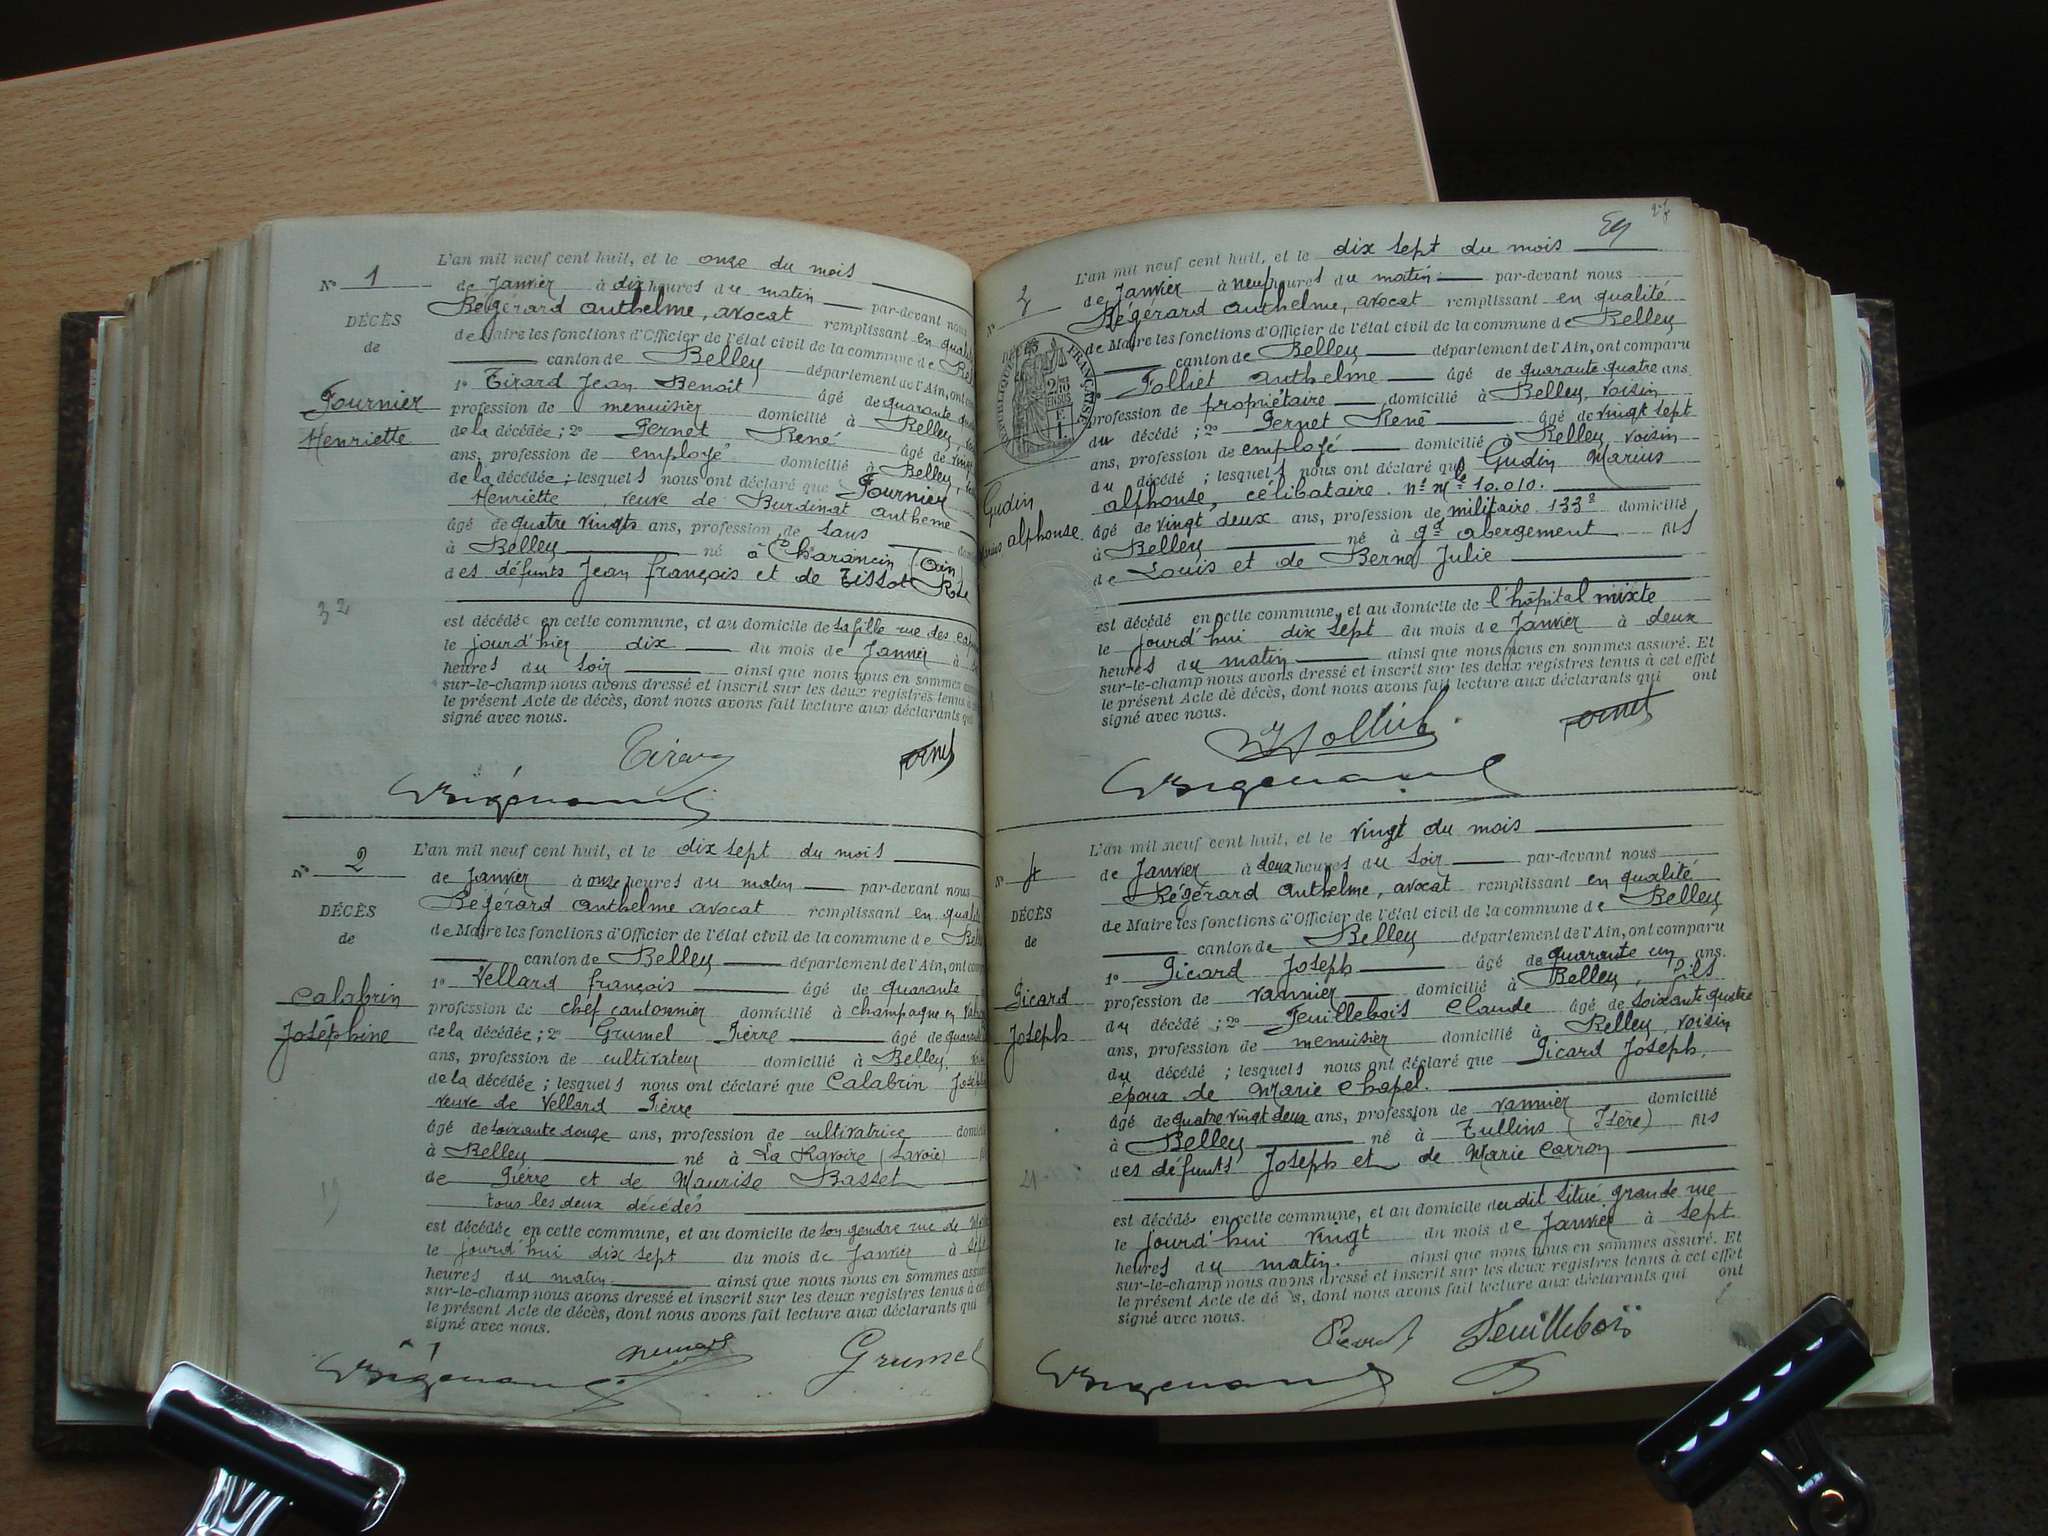 N° 1
DÉCÈS
de
Fournier
Henriette
32
L'an mil neuf cent huit, et le onze du mois
de Janvier à dix heures du matin par-devant nous
Bégérard Anthelme, avocat remplissant en
de Maire les fonctions d'Officier de l'état civil de la commune de
canton de Belley département de l'Ain, ont
1° Tirard Jean Benoît âgé de quarante
profession de menuisier domicilié à Belley,
de la décédée ; 2° Pernet René âgé de
ans, profession de employé domicilié à Belley,
de la décédée ; lesquels nous ont déclaré que Fournier
Henriette, veuve de Burdinat antheme
âgé de quatre vingts ans, profession de sans
à Belley né à Charancin (Ain
des défunts Jean françois et de Tissot Rose
est décédée en cette commune, et au domicile de sa fille rue des
le jourd'hier dix du mois de Janvier à
heures du soir ainsi que nous nous en sommes
sur-le-champ nous avons dressé et inscrit sur les deux registres tenus à
le présent Acte de décès, dont nous avons fait lecture aux déclarants qui
signé avec nous.
N° 2
DÉCÈS
de
Calabrin
Joséphine
L'an mil neuf cent huit, et le dix sept du mois
de Janvier à onze heures du matin par-devant nous
Bégérard Anthelme avocat remplissant en
de Maire les fonctions d'Officier de l'état civil de la commune de
canton de Belley département de l'Ain, ont
1° Vellard françois âgé de quarante
profession de chef cantonnier domicilié à champagne en
de la décédée ; 2° Grumel Pierre âgé de
ans, profession de cultivateur domicilié à Belley,
de la décédée ; lesquels nous ont déclaré que Calabrin
veuve de Vellard Pierre
âgé de soixante douze ans, profession de cultivatrice
à Belley né à La Ravoire (Savoie)
de Pierre et de Maurise Basset
tous les deux décédés
est décédée en cette commune, et au domicile de son gendre rue de
le jourd'hui dix sept du mois de Janvier à sept
heures du matin ainsi que nous nous en sommes
sur-le-champ nous avons dressé et inscrit sur les deux registres tenus à
le présent Acte de décès, dont nous avons fait lecture aux déclarants qui
signé avec nous.
Grumel
N° 3
Gudin
Marius alphonse.
L'an mil neuf cent huit, et le dix sept du mois
de Janvier à neuf heures du matin par-devant nous
Bégérard Anthelme, avocat remplissant en qualité
de Maire les fonctions d'Officier de l'état civil de la commune de Belley
canton de Belley département de l'Ain, ont comparu
Folliet Anthelme âgé de quarante quatre ans
profession de propriétaire domicilié à Belley, voisin
du décédé ; 2° Pernet René âgé de vingt sept
ans, profession de employé domicilié à Belley voisin
du décédé ; lesquels nous ont déclaré que Gudin Marius
alphonse, célibataire. n° mle 10.010.
âgé de vingt deux ans, profession de militaire 133e domicilié
à Belley né à gd abergement fils
de Louis et de Berne Julie
est décédé en cette commune, et au domicile de l'hôpital mixte
le jourd'hui dix sept du mois de Janvier à deux
heures du matin ainsi que nous nous en sommes assuré. Et
sur-le-champ nous avons dressé et inscrit sur les deux registres tenus à cet effet
le présent Acte de décès, dont nous avons fait lecture aux déclarants qui ont
signé avec nous.
N° 4
DÉCÈS
de
Picard
Joseph
21
L'an mil neuf cent huit, et le vingt du mois
de Janvier à deux heures du soir par-devant nous
Bégérard Anthelme, avocat remplissant en qualité
de Maire les fonctions d'Officier de l'état civil de la commune de Belley
canton de Belley département de l'Ain, ont comparu
1° Picard Joseph âgé de quarante un ans.
profession de vannier domicilié à Belley, fils
du décédé ; 2° Feuillebois Claude âgé de soixante quatre
ans, profession de menuisier domicilié à Belley, voisin
du décédé ; lesquels nous ont déclaré que Picard Joseph,
époux de Marie Chapel.
âgé de quatre vingt deux ans, profession de vannier domicilié
à Belley né à Tullins (Isère) fils
des défunts Joseph et de Marie Carron
est décédé en cette commune, et au domicile du dit situé grande rue
le jourd'hui vingt du mois de Janvier à sept
heures du matin. ainsi que nous nous en sommes assuré. Et
sur-le-champ nous avons dressé et inscrit sur les deux registres tenus à cet effet
le présent Acte de décès, dont nous avons fait lecture aux déclarants qui ont
signé avec nous.
Feuillebois